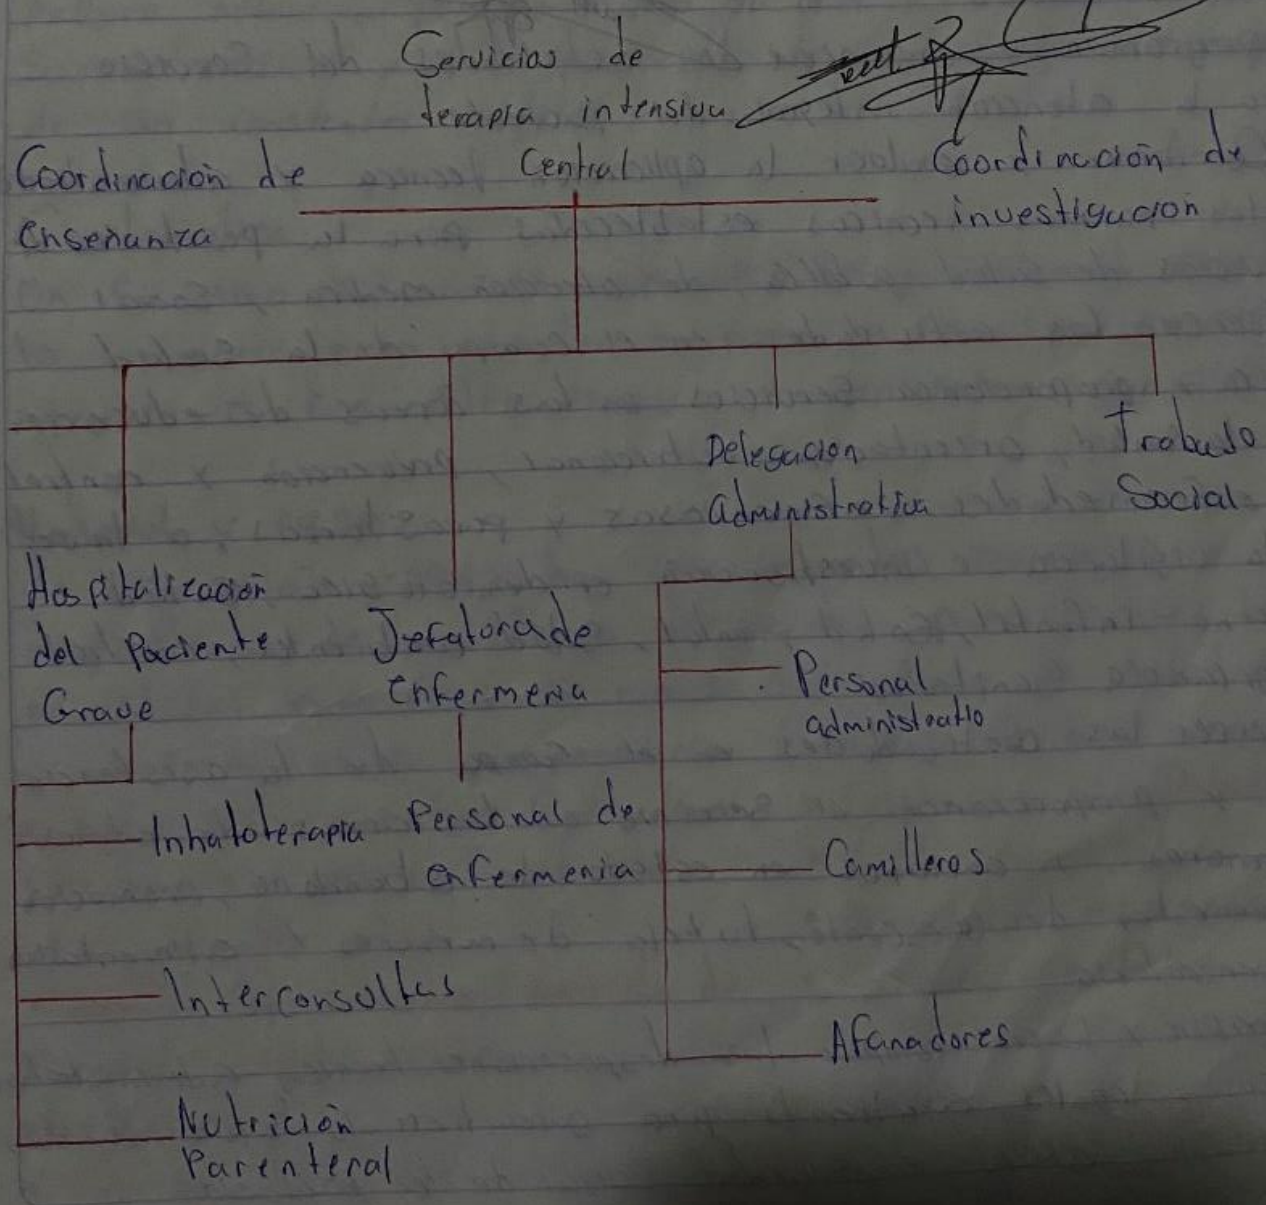 Servicios de
terapia intensiva
Central
Coordinación de
enseñanza
Coordinación de
investigación
Hospitalización
del Paciente
Grave
Jefatura de
enfermeria
Delegacion
administrativa
Trabaso
Social
Inhaloterapia
Interconsultas
Nutrición
Parenteral
Personal de
enfermeria
Personal
administratio
Camilleros
Afanadores